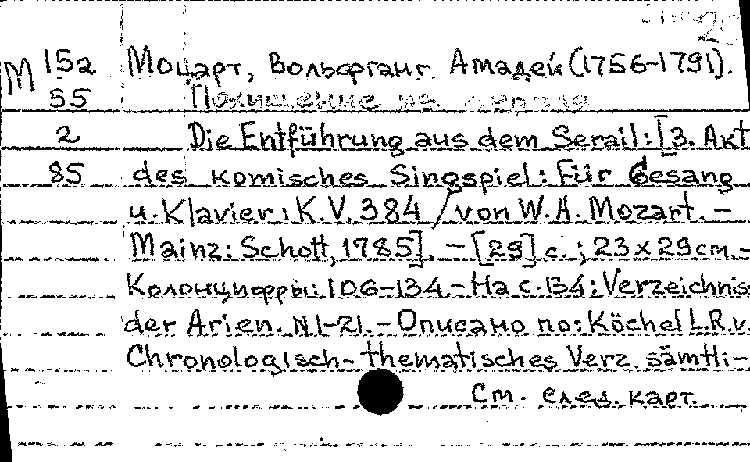 2
М 15а Моцарт, Вольфганг Амадей (1756-1791).
55 Похищение из сераля
2 Die Entführung aus dem Serail: [3. Akt
85 des komisches Singspiel: Für Gesang
u. Klavier: K.V. 384 / von W.A. Mozart. –
Mainz: Schott, 1785]. – [29] с.; 23 x 29 cm. –
Колонцифры: 106-134. – На с. 134: Verzeichnis
der Arien. N 1-21. – Описано по: Köchel L.R.v.
Chronologisch-thematisches Verz. sämtli-
См. след. карт.